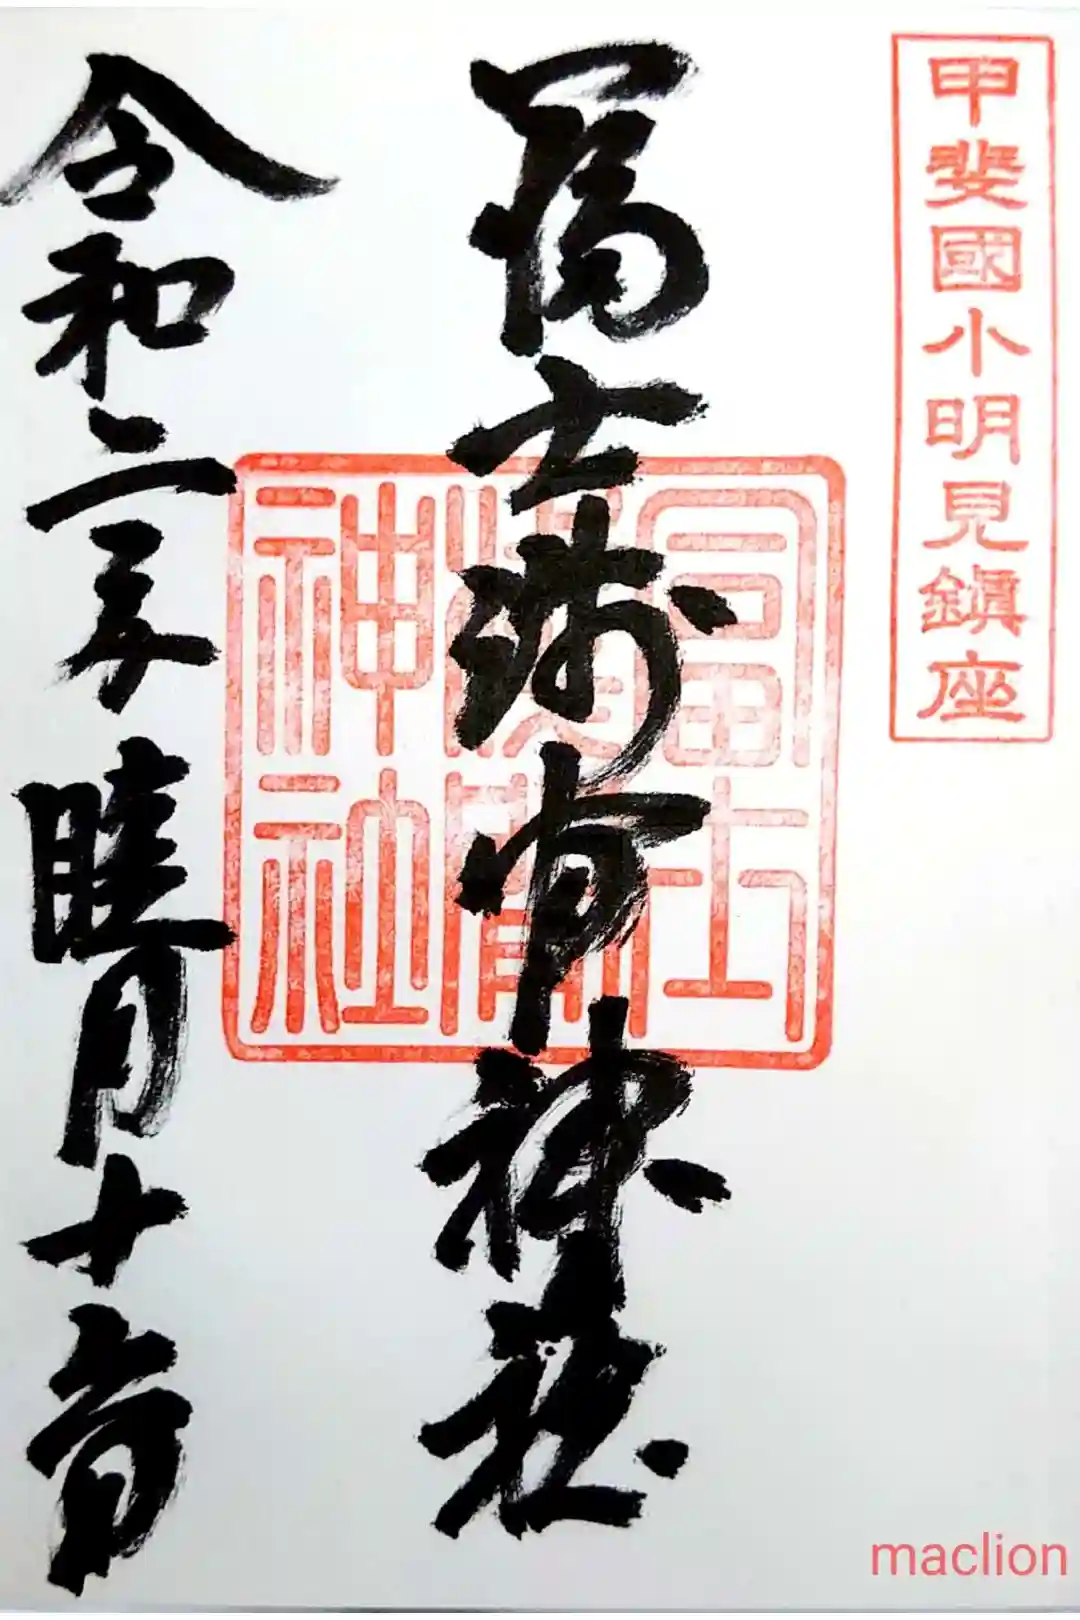 甲斐國小明見鎭座
冨士浅間神社
富士淺間神社
令和二年睦月十六日
maclion